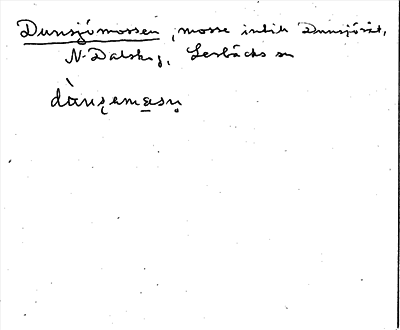 Dunsjömossen, mosse intill Dunsjöröset,
N. Dalskog, Lerbäcks sn
dùnʂəmåsn̥